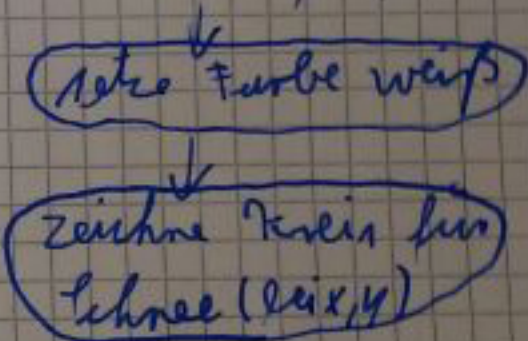 setze Farbe weiß
zeichne Kreis für
Schnee (bei x,y)